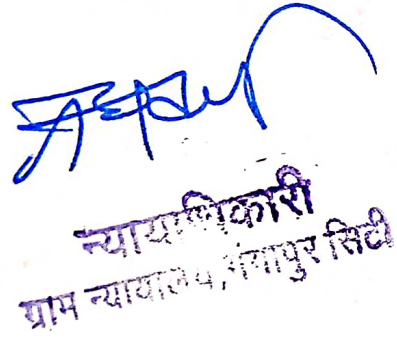 न्यायाधिकारी
ग्राम न्यायालय, गंगापुर सिटी